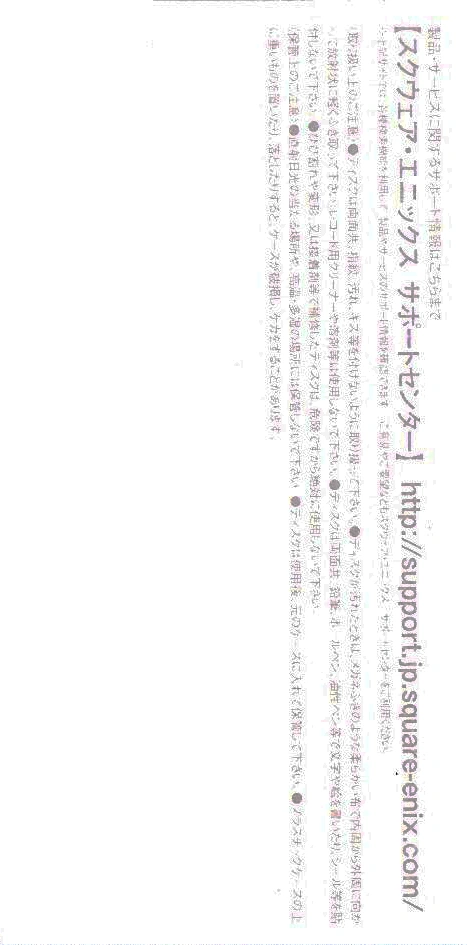 製品・サービスに関するサポート情報はこちらまで
【スクウェア・エニックス サポートセンター】 http://support.jp.square-enix.com/
上記サイトでは、各種検索機能を利用して、製品やサービスのサポート情報を確認できます。ご意見やご要望などもスクウェア・エニックス サポートセンターをご利用ください。
取り扱い上のご注意 ●ディスクは両面共、指紋、汚れ、キズ等を付けないように取り扱って下さい。●ディスクが汚れたときは、メガネふきのような柔らかい布で内周から外周に向か
って放射状に軽くふき取って下さい。レコード用クリーナーや溶剤等は使用しないで下さい。●ディスクは両面共、鉛筆、ボールペン、油性ペン等で文字や絵を書いたり、シール等を貼
付しないで下さい。●ひび割れや変形、又は接着剤等で補修したディスクは、危険ですから絶対に使用しないで下さい。
保管上のご注意 ●直射日光の当たる場所や、高温・多湿の場所には保管しないで下さい。●ディスクは使用後、元のケースに入れて保管して下さい。●プラスチックケースの上
に重いものを置いたり、落としたりすると、ケースが破損し、ケガをすることがあります。